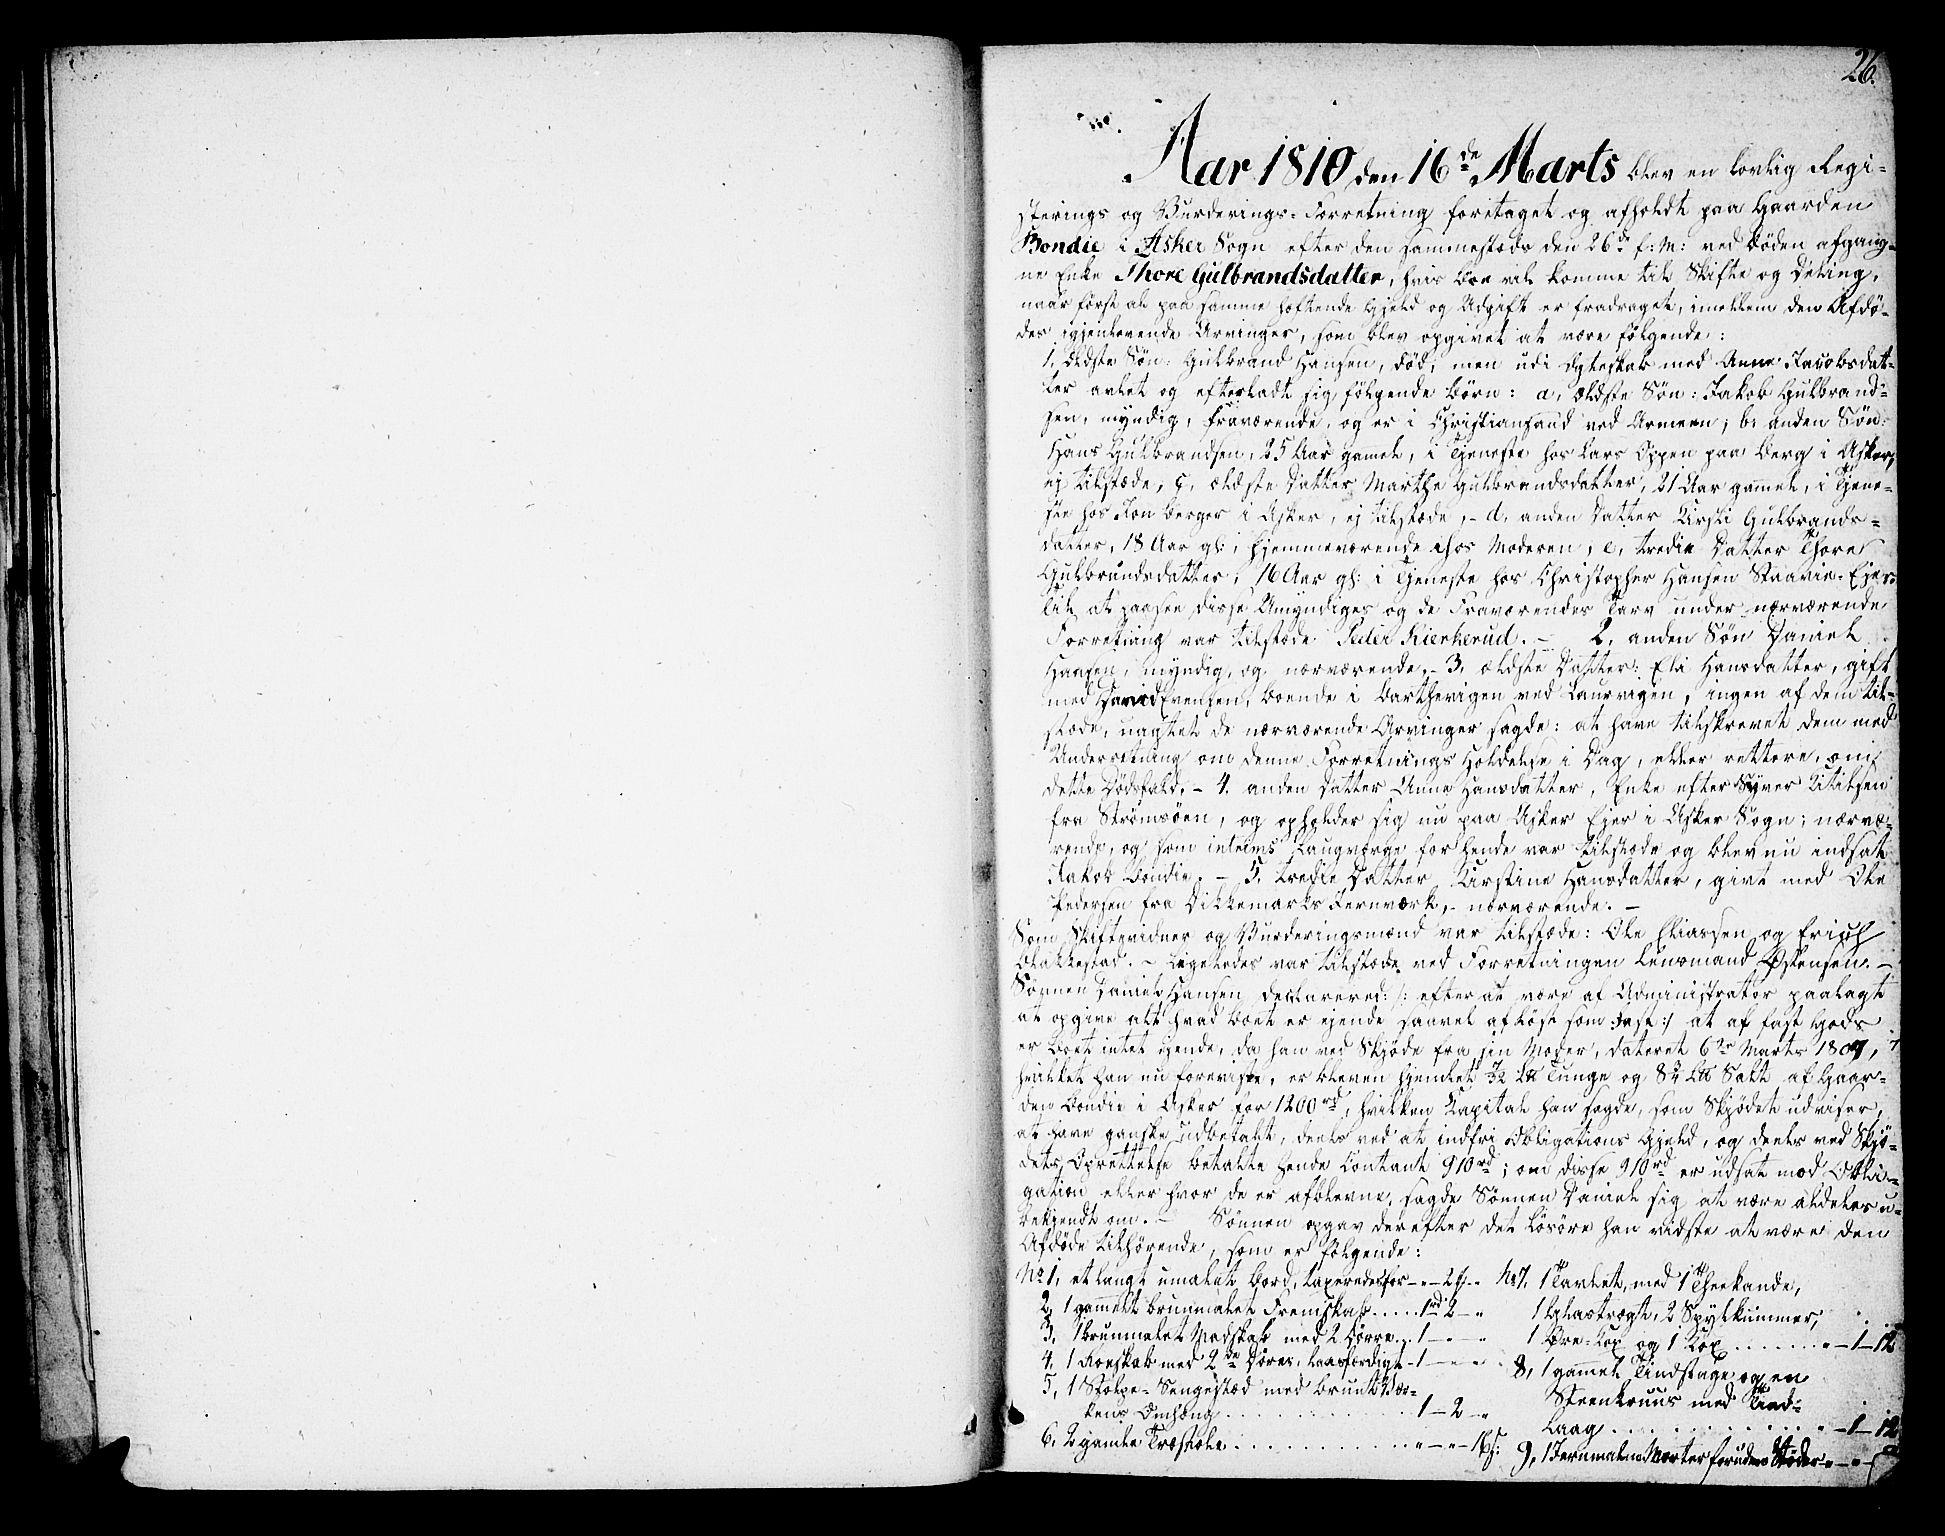 26.
Aar 1810 den 16de Marts blev en lovlig Regi-
sterings og Vurderings-Forretning foretaget og afholdt paa Gaarden
Bondie i Asker Sogn efter den sammestæds den 26de f: M: ved døden afgang-
ne Enke Thore Gulbrandsdatter, hvis Boe vil komme til Skifte og Deling,
naar først al paa samme hæftende Gjeld og Udgift er fradraget, imellem den Afdø-
des igjenlevende Arvinger, som blev opgivet at være følgende:
1, Eldste Søn: Gulbrand Hansen, død; men udi Egteskab med Anne Jacobsdat-
ter avlet og efterladt sig følgende Børn: a, ældste Søn: Jakob Gulbrand-
sen, myndig, fraværende, og er i Christiansand ved Armeen; b, anden Søn:
Hans Gulbrandsen, 25 Aar gamel, i Tjeneste hos Lars Oppen paa Berg i Asker,
ej tilstæde, ç, ældste Datter Marthe Gulbrandsdatter, 21 Aar gamel, i Tjene-
ste hos Jon Berger i Asker, ej tilstæde, - d, anden Datter Kirsti Gulbrands-
datter, 18 Aar gl:, hjemmeværende hos Moderen; e, tredie Datter Thore
Gulbrandsdatter, 16 Aar gl: i Tjeneste hos Christopher Hansen Staavie-Ejer.
Til at paasee disse Umyndiges og de Fraværendes Tarv under nærværende
Forretning var tilstæde Peder Kierkerud. - 2, anden Søn Daniel
Hansen, myndig, og nærværende. - 3, ældste Datter: Eli Hansdatter, gift
med David Evensen, boende i Barthevigen ved Laurvigen, ingen af dem til-
stæde, uagtet de nærværende Arvinger sagde: at have tilskrevet dem med
Underretning om denne Forretnings Holdelse i Dag, eller rettere, om
dette Dødsfald. - 4. anden Datter Anne Hansdatter, Enke efter Syver Kitilsen
fra Strømsøen, og opholder sig nu paa Asker Ejer i Asker Sogn; nærvæ-
rende, og som interims Laugværge for hende var tilstæde og blev nu indsat
Jakob Bondie. - 5, tredie Datter Kirstine Hansdatter, givt med Ole
Pedersen fra Dikkemarks Jernværk, - nærværende. -
Som Skiftevidner og Vurderingsmænd var tilstæde: Ole Eliassen og Erich
Blakkestad. - Ligeledes var tilstæde ved Forretningen Lensmand Østensen. -
Sønnen Daniel Hansen declarered: /: efter at være af Administrator paalagt
at opgive alt hvad Boet er ejende saavel af løst som fast :/ at af fast Gods
er Boet intet ejende, da han ved Skjøde fra sin Moder, dateret 6te Marts 1807,
hvilket han nu foreviste, er bleven hjemlet ½ Lb Tunge og 8¼ Lb Salt af Gaar-
den Bondie i Asker for 1200rd, hvilken Kapital han sagde, som Skjødet udviser,
at have ganske udbetalt, deels ved at indfri Obligations Gjeld, og deels ved Skjø-
dets Oprettelse betalte hende Contant 910rd; om disse 910rd er udsat mod Obli-
gation eller hvor de er afblevne, sagde Sønnen Daniel sig at være aldeles u-
bekjendt om. - Sønnen opgav derefter det Løsøre han vidste at være den
Afdøde tilhørende, som er følgende:
No 1, et langt umalet Bord, taxeredes for - " - 2 f. "
2, 1 gammelt brunmalet Fremskab ..... 1rd 2 - "
3, 1 brunmalet Madskab med 2 Dørre .. 1 - " - "
4, 1 Roeskab med 2de Dører, laasfærdigt - 1 - " - "
5, 1 Stolpe-Sengestæd med brunt Vær-
kens Omhæng ............ 1 - 2 - "
6, 2 gamle Træstole ............ " - " - 16 s:
No 7, 1 Tavlet, med 1 Theekande,
1 Glastragt, 2 Spølkummer,
1 Øre-Kop og 1 Kop ....... " - 1 - 12
8, 1 gamel Tindstage og en
Steenkruus med Tind-
Laag ............ " - 1 - 12
9, 1 Jernmalm Morter foruden Støder " - " -